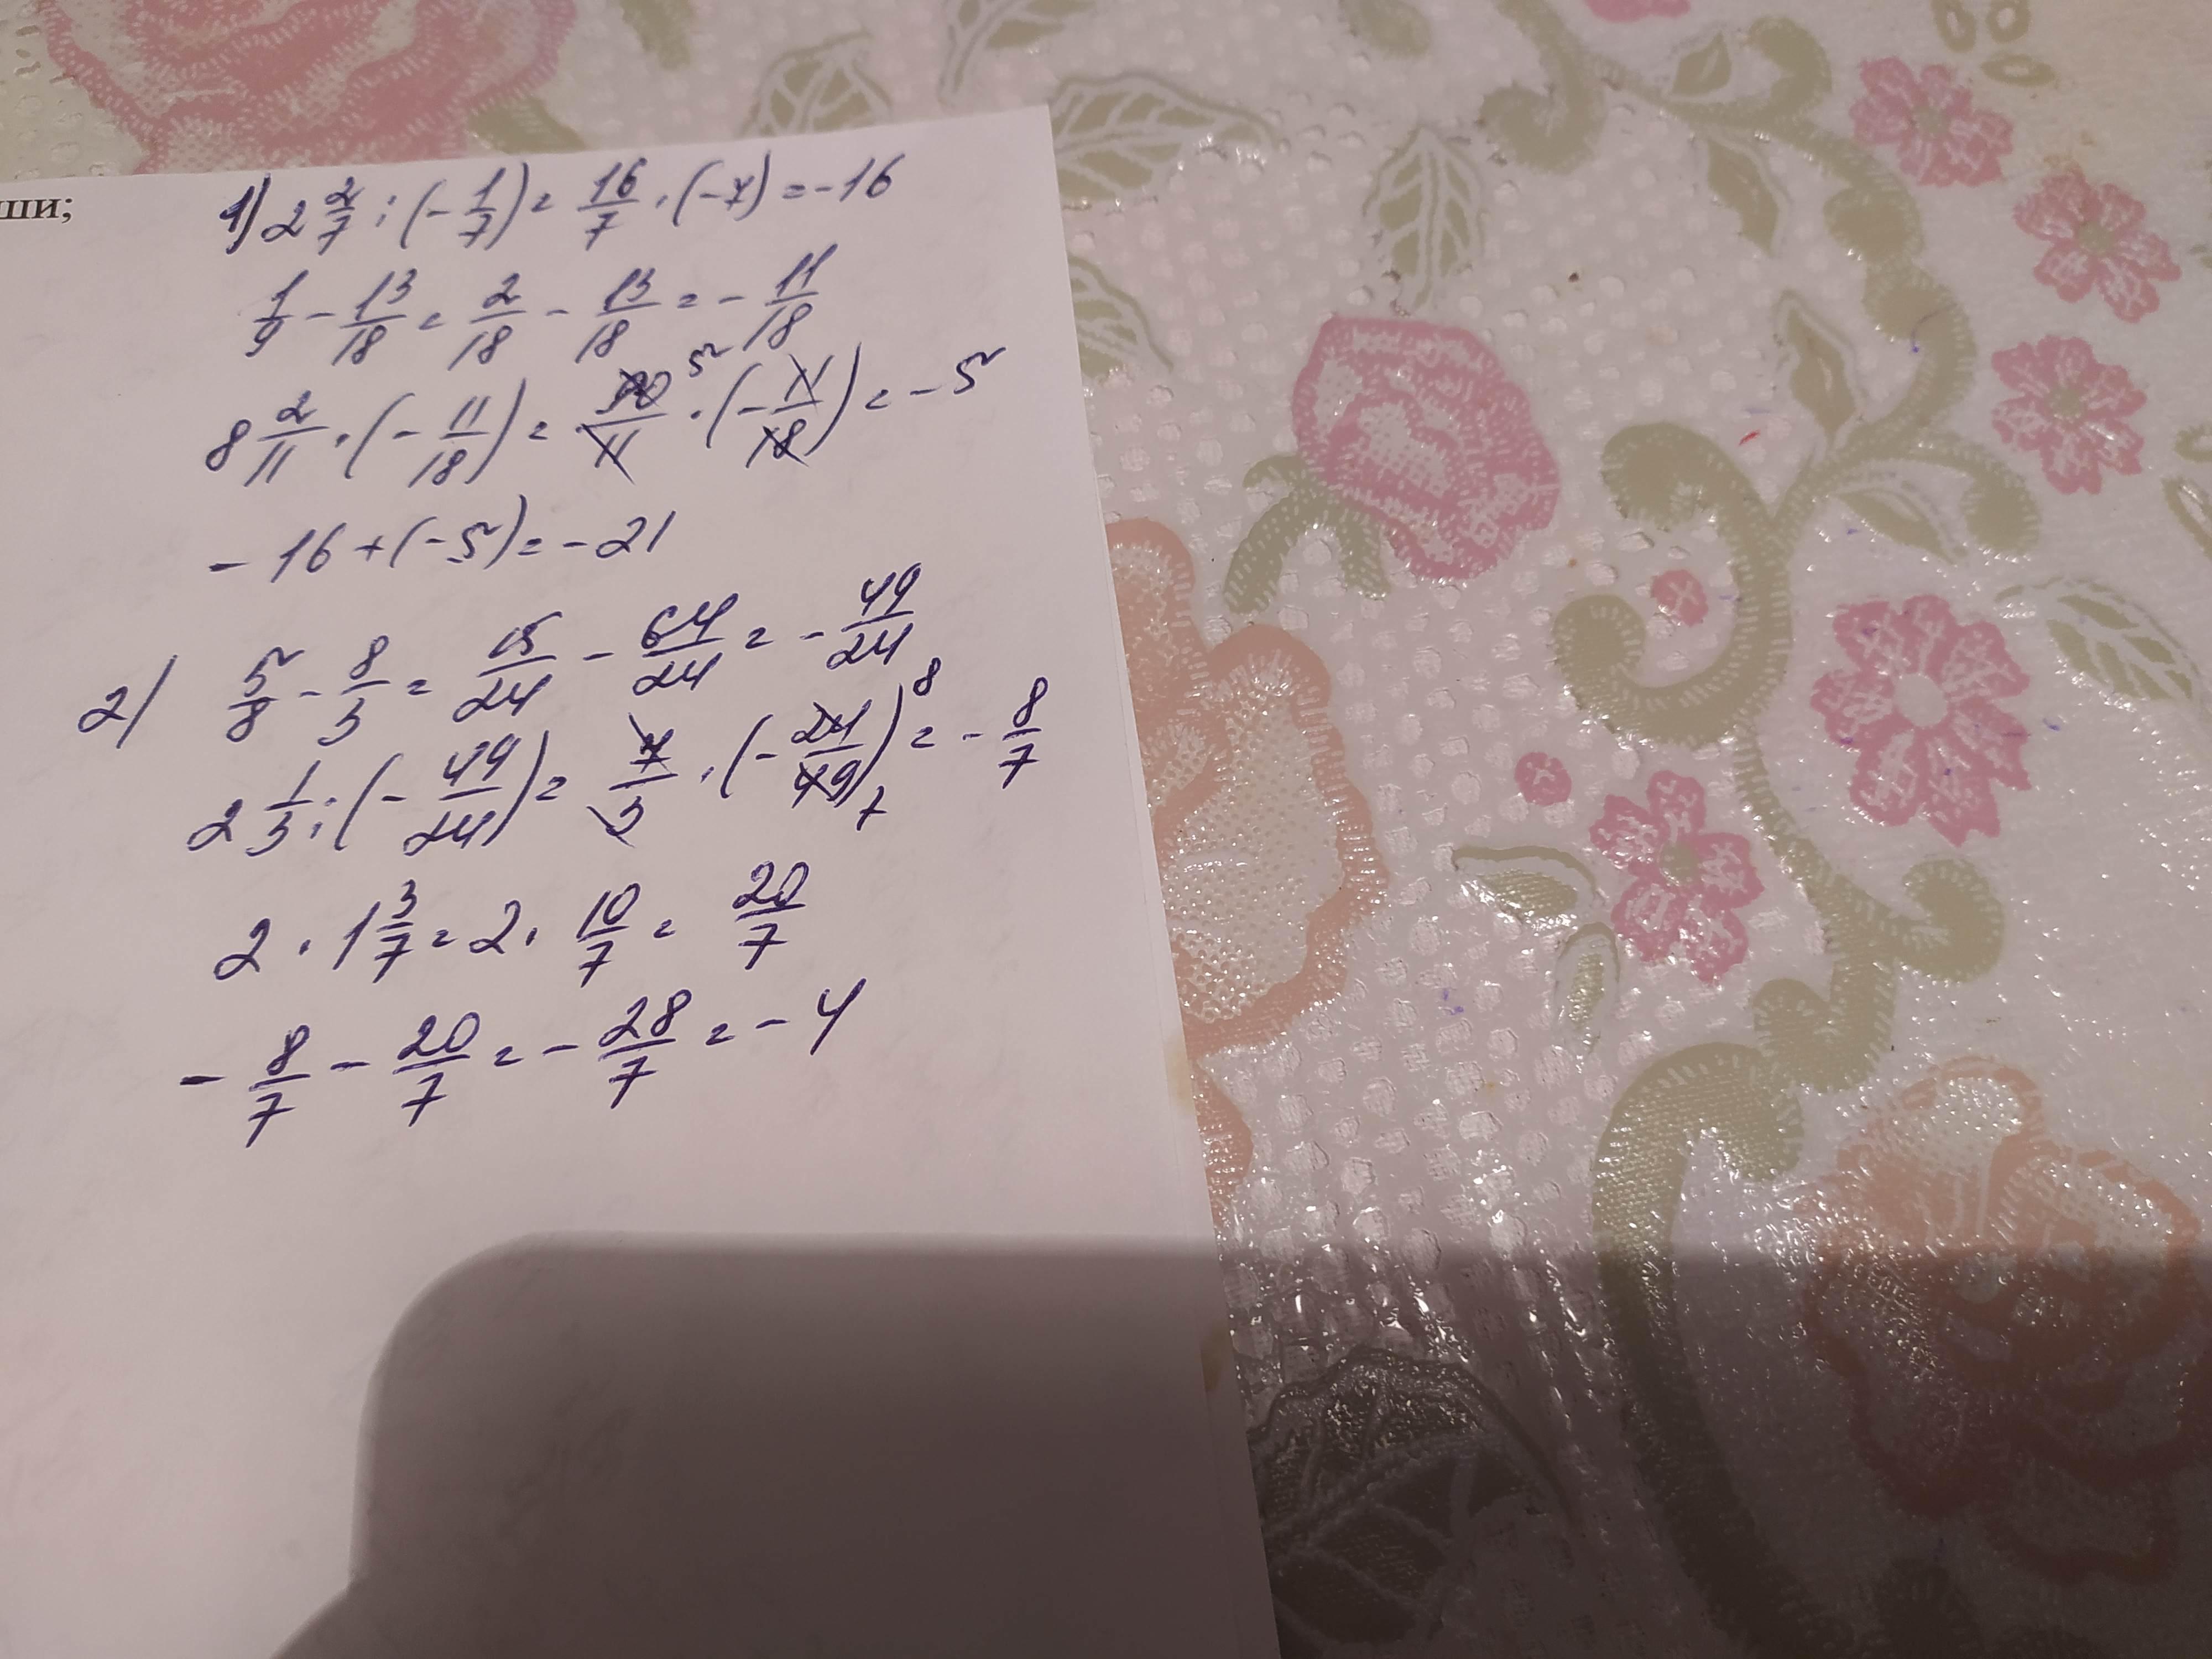 ши;
1) 2 2/7 : (- 1/7) = 16/7 · (-7) = -16
1/9 - 13/18 = 2/18 - 13/18 = - 11/18
8 2/11 · (- 11/18) = 90/11 5 · (- 11/18) = - 5
- 16 + (-5) = - 21
2) 5/8 - 8/3 = 15/24 - 64/24 = - 49/24
2 1/3 : (- 49/24) = 7/3 · (- 24/49) 8 7 = - 8/7
2 · 1 3/7 = 2 · 10/7 = 20/7
- 8/7 - 20/7 = - 28/7 = - 4